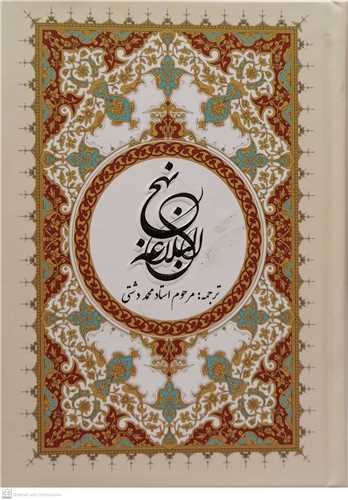 نهج
البلاغه
ترجمه: مرحوم استاد محمد دشتی